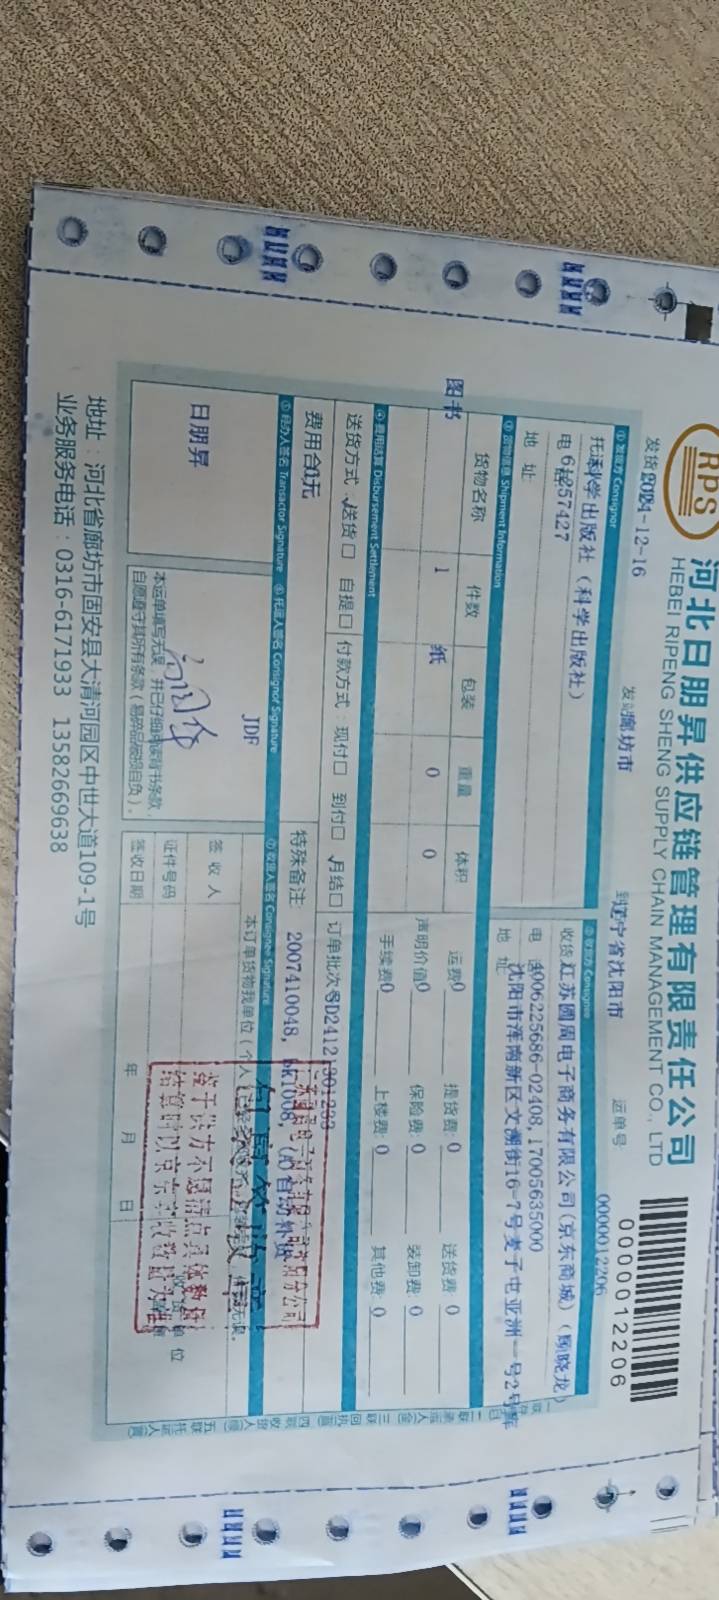 RPS
河北日朋昇供应链管理有限责任公司
HEBEI RIPENG SHENG SUPPLY CHAIN MANAGEMENT CO., LTD
0000012206
发货 2024-12-16 发站 廊坊市 到 辽宁省沈阳市 运单号: 0000012206
① 发货方 Consignor ② 收货方 Consignee
科学出版社（科学出版社） 收货 江苏圆周电子商务有限公司(京东商城)（顾晓龙）
电 57427 电 4006225686-02408,17005635000
地 址: 地 址 沈阳市浑南新区文溯街16-7号麦子屯亚洲一号2号库
③ 货物信息 Shipment Information
货物名称 件数 包装 重量 体积 运费 0 提货费: 0 送货费 0
图书 1 纸 0 0 声明价值 0 保险费: 0 装卸费: 0
手续费 0 上楼费: 0 其他费: 0
④ 费用结算 Disbursement Settlement
送货方式: 送货□ 自提□ 付款方式: 现付□ 到付□ 月结□ 订单批次号 SD2412
费用合 元 特殊备注: 2007410048, bk1008, 自动补货
⑤ 经办人签名 Transactor Signature ⑥ 托运人签名 Consignor Signature ⑦ 收货人签名 Consignee Signature
JDF 本订单货物我单位（个人）
日朋昇
签 收 人 收 货 单 位
本运单填写无误，并已仔细阅读背书条款， 证件号码
自愿遵守其所有条款（易碎品破损自负）。 签收日期 年 月 日
鉴于供方不愿清点具体数量
结算时以京东实收数量为准
地址：河北省廊坊市固安县大清河园区中世大道109-1号
业务服务电话：0316-6171933 13582669638